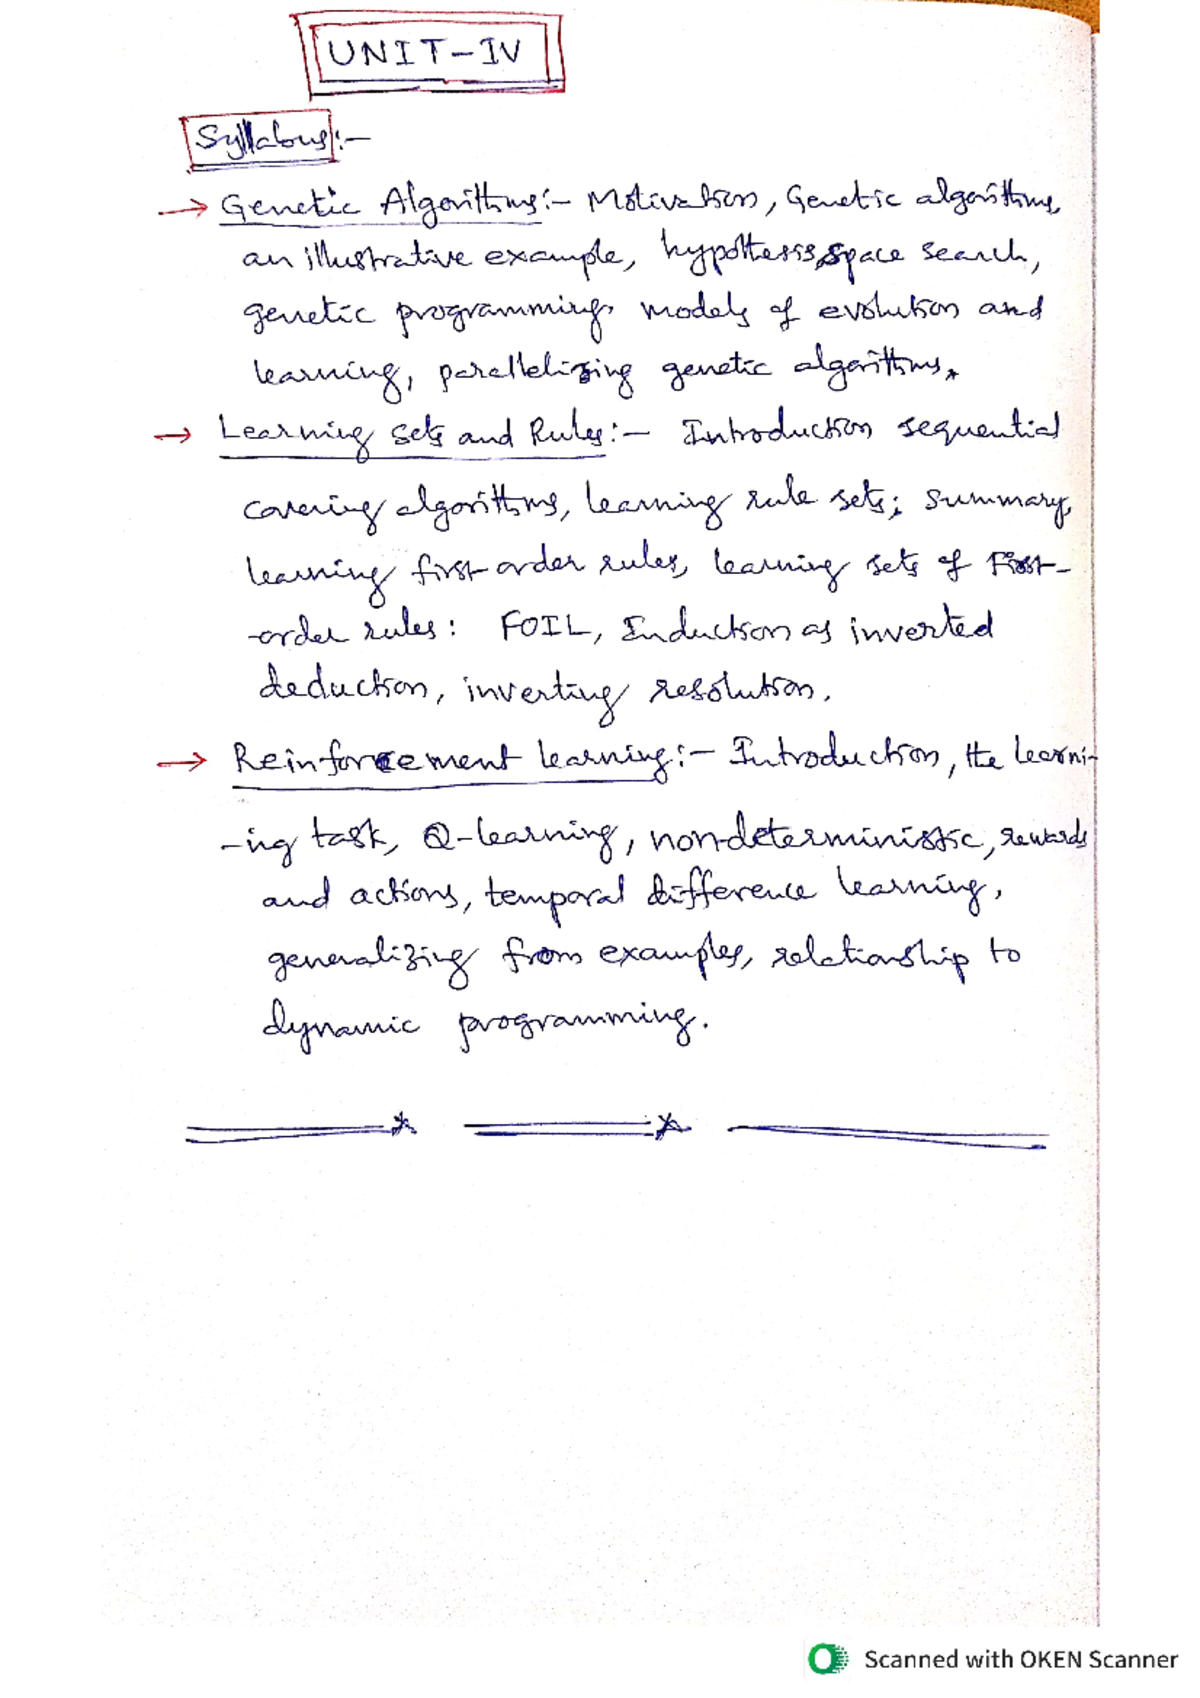 UNIT-IV
Syllabus:-
→ Genetic Algorithms:- Motivation, Genetic algorithms,
an illustrative example, hypothesis space search,
genetic programming, models of evolution and
learning, parallelizing genetic algorithms.
→ Learning sets and Rules:- Introduction sequential
covering algorithms, learning rule sets; summary,
learning first-order rules, learning sets of First-
-order rules: FOIL, Induction as inverted
deduction, inverting resolution.
→ Reinforcement learning:- Introduction, the learni-
-ing task, Q-learning, non-deterministic, rewards
and actions, temporal difference learning,
generalizing from examples, relationship to
dynamic programming.
Scanned with OKEN Scanner